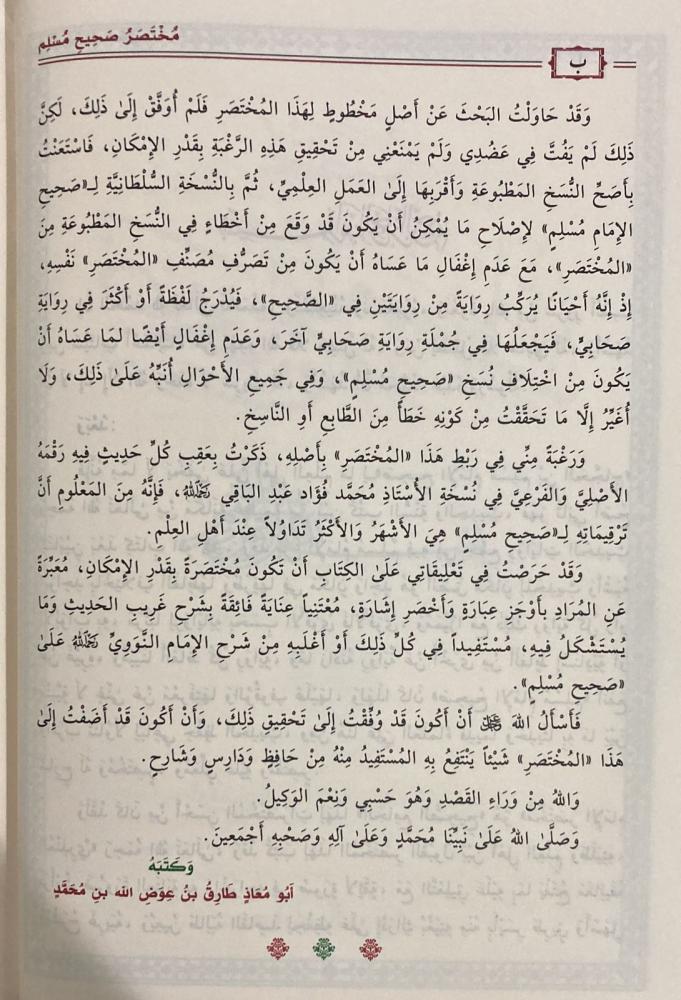 مُخْتَصَرُ صَحِيحِ مُسْلِم
ب
وَقَدْ حَاوَلْتُ البَحْثَ عَنْ أَصْلٍ مَخْطُوطٍ لِهَذَا المُخْتَصَرِ فَلَمْ أُوَفَّقْ إِلَىٰ ذَلِكَ، لَكِنَّ
ذَلِكَ لَمْ يَفُتَّ فِي عَضُدِي وَلَمْ يَمْنَعْنِي مِنْ تَحْقِيقِ هَذِهِ الرَّغْبَةِ بِقَدْرِ الإِمْكَانِ، فَاسْتَعَنْتُ
بِأَصَحِّ النُّسَخِ المَطْبُوعَةِ وَأَقْرَبِهَا إِلَىٰ العَمَلِ العِلْمِيِّ، ثُمَّ بِالنُّسْخَةِ السُّلْطَانِيَّةِ لِـ«صَحِيحِ
الإِمَامِ مُسْلِمٍ» لإِصْلَاحِ مَا يُمْكِنُ أَنْ يَكُونَ قَدْ وَقَعَ مِنْ أَخْطَاءٍ فِي النُّسَخِ المَطْبُوعَةِ مِنَ
«المُخْتَصَرِ»، مَعَ عَدَمِ إِغْفَالِ مَا عَسَاهُ أَنْ يَكُونَ مِنْ تَصَرُّفِ مُصَنِّفِ «المُخْتَصَرِ» نَفْسِهِ،
إِذْ إِنَّهُ أَحْيَانًا يُرَكِّبُ رِوَايَةً مِنْ رِوَايَتَيْنِ فِي «الصَّحِيحِ»، فَيُدْرِجُ لَفْظَةً أَوْ أَكْثَرَ فِي رِوَايَةِ
صَحَابِيٍّ، فَيَجْعَلُهَا فِي جُمْلَةِ رِوَايَةِ صَحَابِيٍّ آخَرَ، وَعَدَمِ إِغْفَالٍ أَيْضًا لمَا عَسَاهُ أَنْ
يَكُونَ مِنْ اخْتِلَافِ نُسَخِ «صَحِيحِ مُسْلِمٍ»، وَفِي جَمِيعِ الأَحْوَالِ أُنَبِّهُ عَلَىٰ ذَلِكَ، وَلَا
أُغَيِّرُ إِلَّا مَا تَحَقَّقْتُ مِنْ كَوْنِهِ خَطَأً مِنَ الطَّابِعِ أَوِ النَّاسِخِ.
وَرَغْبَةً مِنِّي فِي رَبْطِ هَذَا «المُخْتَصَرِ» بِأَصْلِهِ، ذَكَرْتُ بِعَقِبِ كُلِّ حَدِيثٍ فِيهِ رَقْمَهُ
الأَصْلِيَّ وَالفَرْعِيَّ فِي نُسْخَةِ الأُسْتَاذِ مُحَمَّد فُؤَاد عَبْدِ البَاقِي رَحِمَهُ اللهُ، فَإِنَّهُ مِنَ المَعْلُومِ أَنَّ
تَرْقِيمَاتِهِ لِـ«صَحِيحِ مُسْلِمٍ» هِيَ الأَشْهَرُ وَالأَكْثَرُ تَدَاوُلاً عِنْدَ أَهْلِ العِلْمِ.
وَقَدْ حَرَصْتُ فِي تَعْلِيقَاتِي عَلَىٰ الكِتَابِ أَنْ تَكُونَ مُخْتَصَرَةً بِقَدْرِ الإِمْكَانِ، مُعَبِّرَةً
عَنِ المُرَادِ بِأَوْجَزِ عِبَارَةٍ وَأَخْصَرِ إِشَارَةٍ، مُعْتَنِياً عِنَايَةً فَائِقَةً بِشَرْحِ غَرِيبِ الحَدِيثِ وَمَا
يُسْتَشْكَلُ فِيهِ، مُسْتَفِيداً فِي كُلِّ ذَلِكَ أَوْ أَغْلَبِهِ مِنْ شَرْحِ الإِمَامِ النَّوَوِيِّ رَحِمَهُ اللهُ عَلَىٰ
«صَحِيحِ مُسْلِمٍ».
فَأَسْأَلُ اللهَ ﷻ أَنْ أَكُونَ قَدْ وُفِّقْتُ إِلَىٰ تَحْقِيقِ ذَلِكَ، وَأَنْ أَكُونَ قَدْ أَضَفْتُ إِلَىٰ
هَذَا «المُخْتَصَرِ» شَيْئاً يَنْتَفِعُ بِهِ المُسْتَفِيدُ مِنْهُ مِنْ حَافِظٍ وَدَارِسٍ وَشَارِحٍ.
وَاللهُ مِنْ وَرَاءِ القَصْدِ وَهُوَ حَسْبِي وَنِعْمَ الوَكِيلُ.
وَصَلَّىٰ اللهُ عَلَىٰ نَبِيِّنَا مُحَمَّدٍ وَعَلَىٰ آلِهِ وَصَحْبِهِ أَجْمَعِينَ.
وَكَتَبَهُ
أَبُو مُعَاذٍ طَارِقُ بنُ عِوَضِ الله بنِ مُحَمَّدٍ